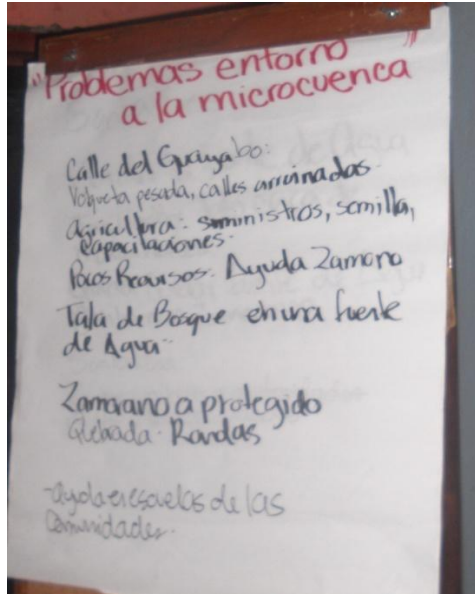 "Problemas entorno "
a la microcuenca
Calle del Guayabo:
Volqueta pesada, calles arruinadas.
Agricultura: suministros, semilla,
capacitaciones.
Pocos Recursos: Ayuda Zamorano
Tala de Bosque en una fuente
de Agua.
Zamorano a protegido
Quebrada. Randas
-ayuda en escuelas de las
Comunidades.